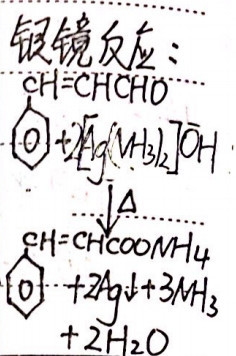 银镜反应：
CH=CHCHO
+2[Ag(NH3)2]OH
Δ
CH=CHCOONH4
+2Ag↓+3NH3
+2H2O